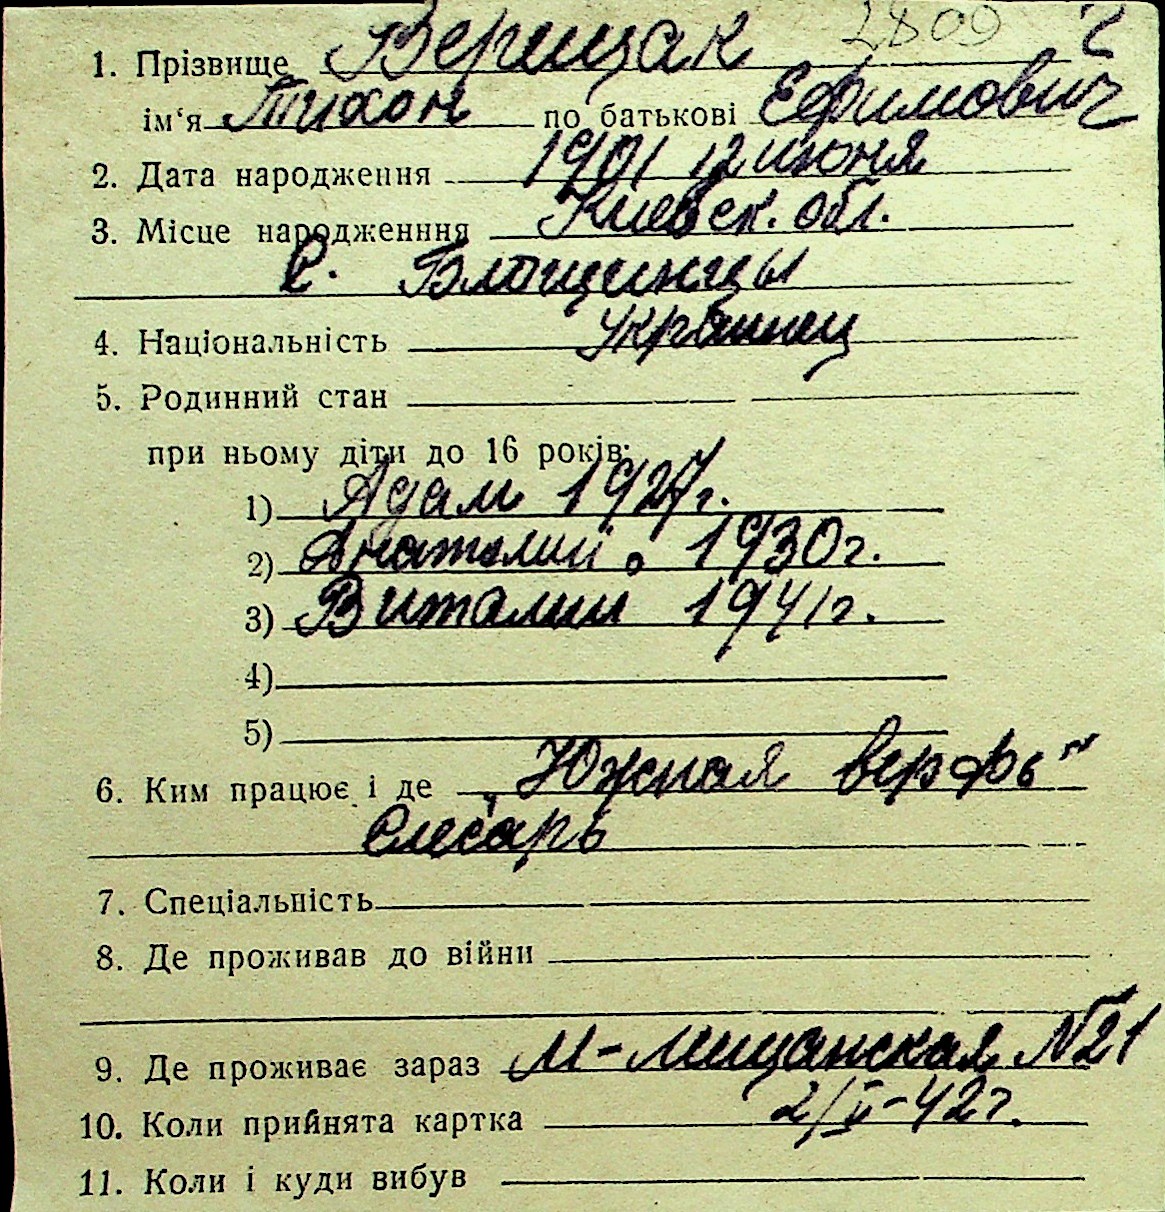 2809
1. Прізвище Верищак
ім‘я Тихон по батькові Ефимович
2. Дата народження 1901 12 июня
3. Місце народженння Киевск. обл.
с. Блощинцы
4. Національність Украинец
5. Родинний стан
при ньому діти до 16 років:
1) Адам 1927г.
2) Анатолий 1930г.
3) Виталий 1941г.
4)
5)
6. Ким працює і де „Южная верфь“
Слесарь
7. Спеціальність
8. Де проживав до війни
9. Де проживає зараз М-Мищанская N21
10. Коли прийнята картка 2/II-42г.
11. Коли і куди вибув